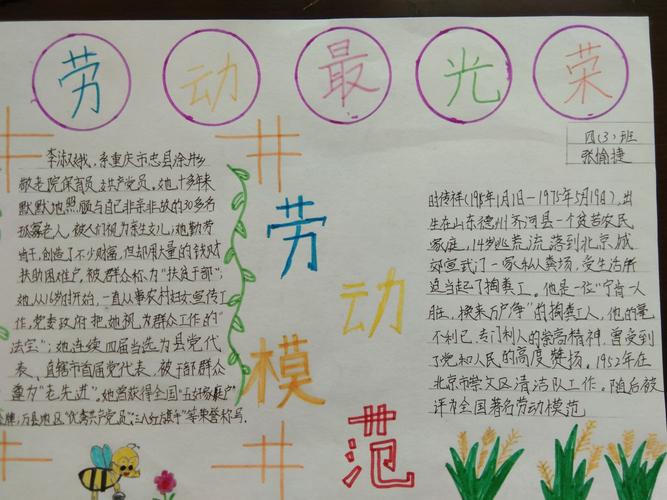 劳动最光荣
四(3)班
张愉捷
李淑娥,系重庆市忠县涂井乡
敬老院保育员,共产党员。她,十多年来
默默地照顾与自己非亲非故的30多名
孤寡老人,被人们视为亲生女儿;她勤劳
肯干,创造了不少财富,但却用大量的钱财
扶助困难户,被群众称为"扶贫干部";
她从16岁时开始,一直从事农村妇女宣传工
作,党委政府把她视为群众工作的"
法宝";她连续四届当选为县党代
表、直辖市首届党代表,被干部群众
尊为"老先进"。她曾获得全国"五好家庭户"
万县地区"优秀共产党员""三八红旗手"等荣誉称号
劳
动
模
范
时传祥(1915年1月1日—1975年5月19日),出
生在山东德州齐河县一个贫苦农民
家庭。14岁逃荒流落到北京城
郊宣武门一家私人粪场,受生活所
迫当起了掏粪工。他是一位"宁肯一人
脏,换来万户净"的掏粪工人,他的毫
不利己,专门利人的崇高精神,曾受到
了党和人民的高度赞扬。1952年在
北京市崇文区清洁队工作。随后被
评为全国著名劳动模范